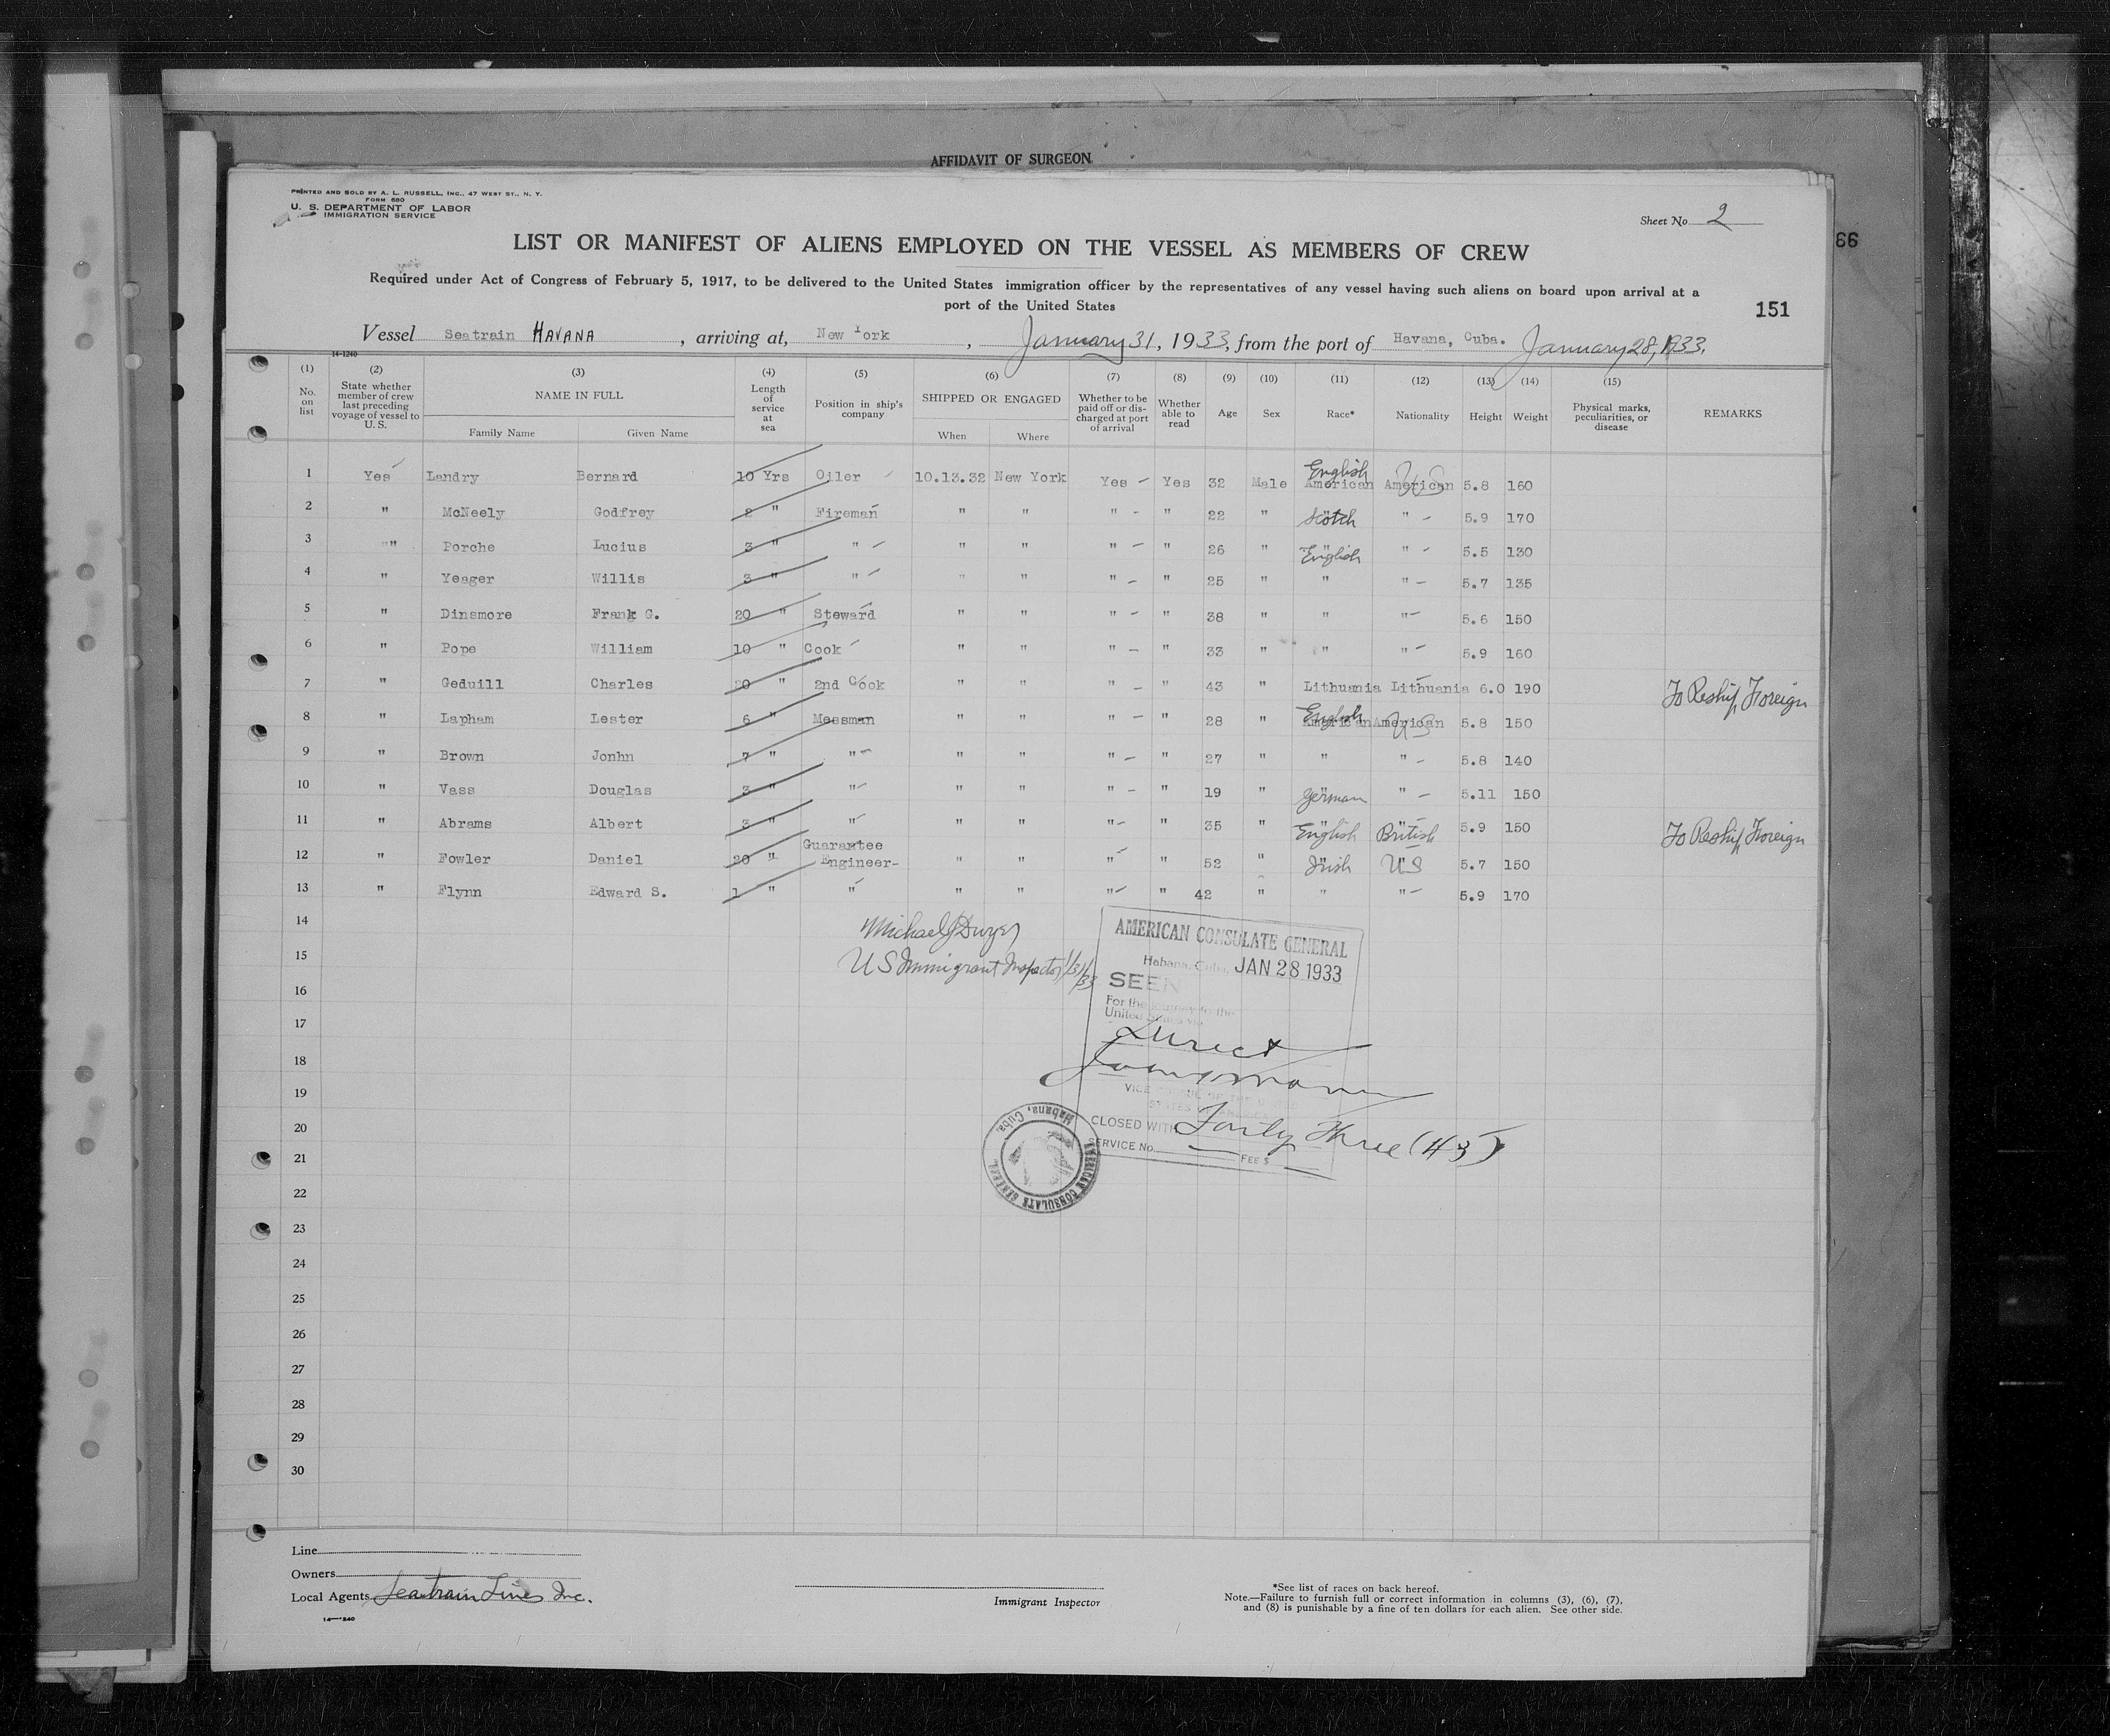 AFFIDAVIT OF SURGEON
PRINTED AND SOLD BY A. L. RUSSELL, INC., 47 WEST ST., N. Y.
FORM 680
U. S. DEPARTMENT OF LABOR
IMMIGRATION SERVICE
Sheet No 2
66
LIST OR MANIFEST OF ALIENS EMPLOYED ON THE VESSEL AS MEMBERS OF CREW
Required under Act of Congress of February 5, 1917, to be delivered to the United States immigration officer by the representatives of any vessel having such aliens on board upon arrival at a
port of the United States
151
Vessel Seatrain HAVANA , arriving at, New York , January 31, 1933, from the port of Havana, Cuba. January 28, 1933.
14-1240
(1) No. on list (2) State whether member of crew last preceding voyage of vessel to U. S. (3) NAME IN FULL Family Name Given Name (4) Length of service at sea (5) Position in ship's company (6) SHIPPED OR ENGAGED When Where (7) Whether to be paid off or discharged at port of arrival (8) Whether able to read (9) Age (10) Sex (11) Race* (12) Nationality (13) Height (14) Weight (15) Physical marks, peculiarities, or disease REMARKS
1 Yes Landry Bernard 10 Yrs Oiler 10.13.32 New York Yes - Yes 32 Male American English American US 5.8 160
2 " McNeely Godfrey 2 " Fireman " " " - " 22 " Scotch " - 5.9 170
3 " Porche Lucius 3 " " " " " - " 26 " English " - 5.5 130
4 " Yeager Willis 3 " " " " " - " 25 " " " - 5.7 135
5 " Dinsmore Frank G. 20 " Steward " " " - " 38 " " " - 5.6 150
6 " Pope William 10 " Cook " " " - " 33 " " " - 5.9 160
7 " Geduill Charles 20 " 2nd Cook " " " - " 43 " Lithuania Lithuania 6.0 190 To Reship Foreign
8 " Lapham Lester 6 " Messman " " " - " 28 " American English American US 5.8 150
9 " Brown Jonhn 7 " " " " " - " 27 " " " - 5.8 140
10 " Vass Douglas 3 " " " " " - " 19 " German " - 5.11 150
11 " Abrams Albert 3 " " " " " - " 35 " English British 5.9 150 To Reship Foreign
12 " Fowler Daniel 20 " Guarantee Engineer- " " " " 52 " Irish US 5.7 150
13 " Flynn Edward S. 1 " " " " " " 42 " " " - 5.9 170
14
15
16
17
18
19
20
21
22
23
24
25
26
27
28
29
30
Michael J Dwyer
US Immigrant Inspector 1/31/33
AMERICAN CONSULATE GENERAL
Habana, Cuba, JAN 28 1933
SEEN
For the journey to the
United States via
Direct
VICE CONSUL OF THE UNITED
STATES OF AMERICA
CLOSED WITH Forty Three (43)
SERVICE No. FEE $
AMERICAN CONSULATE GENERAL Habana, Cuba.
Line
Owners
Local Agents Seatrain Lines Inc.
14-1240
Immigrant Inspector
*See list of races on back hereof.
Note.—Failure to furnish full or correct information in columns (3), (6), (7),
and (8) is punishable by a fine of ten dollars for each alien. See other side.